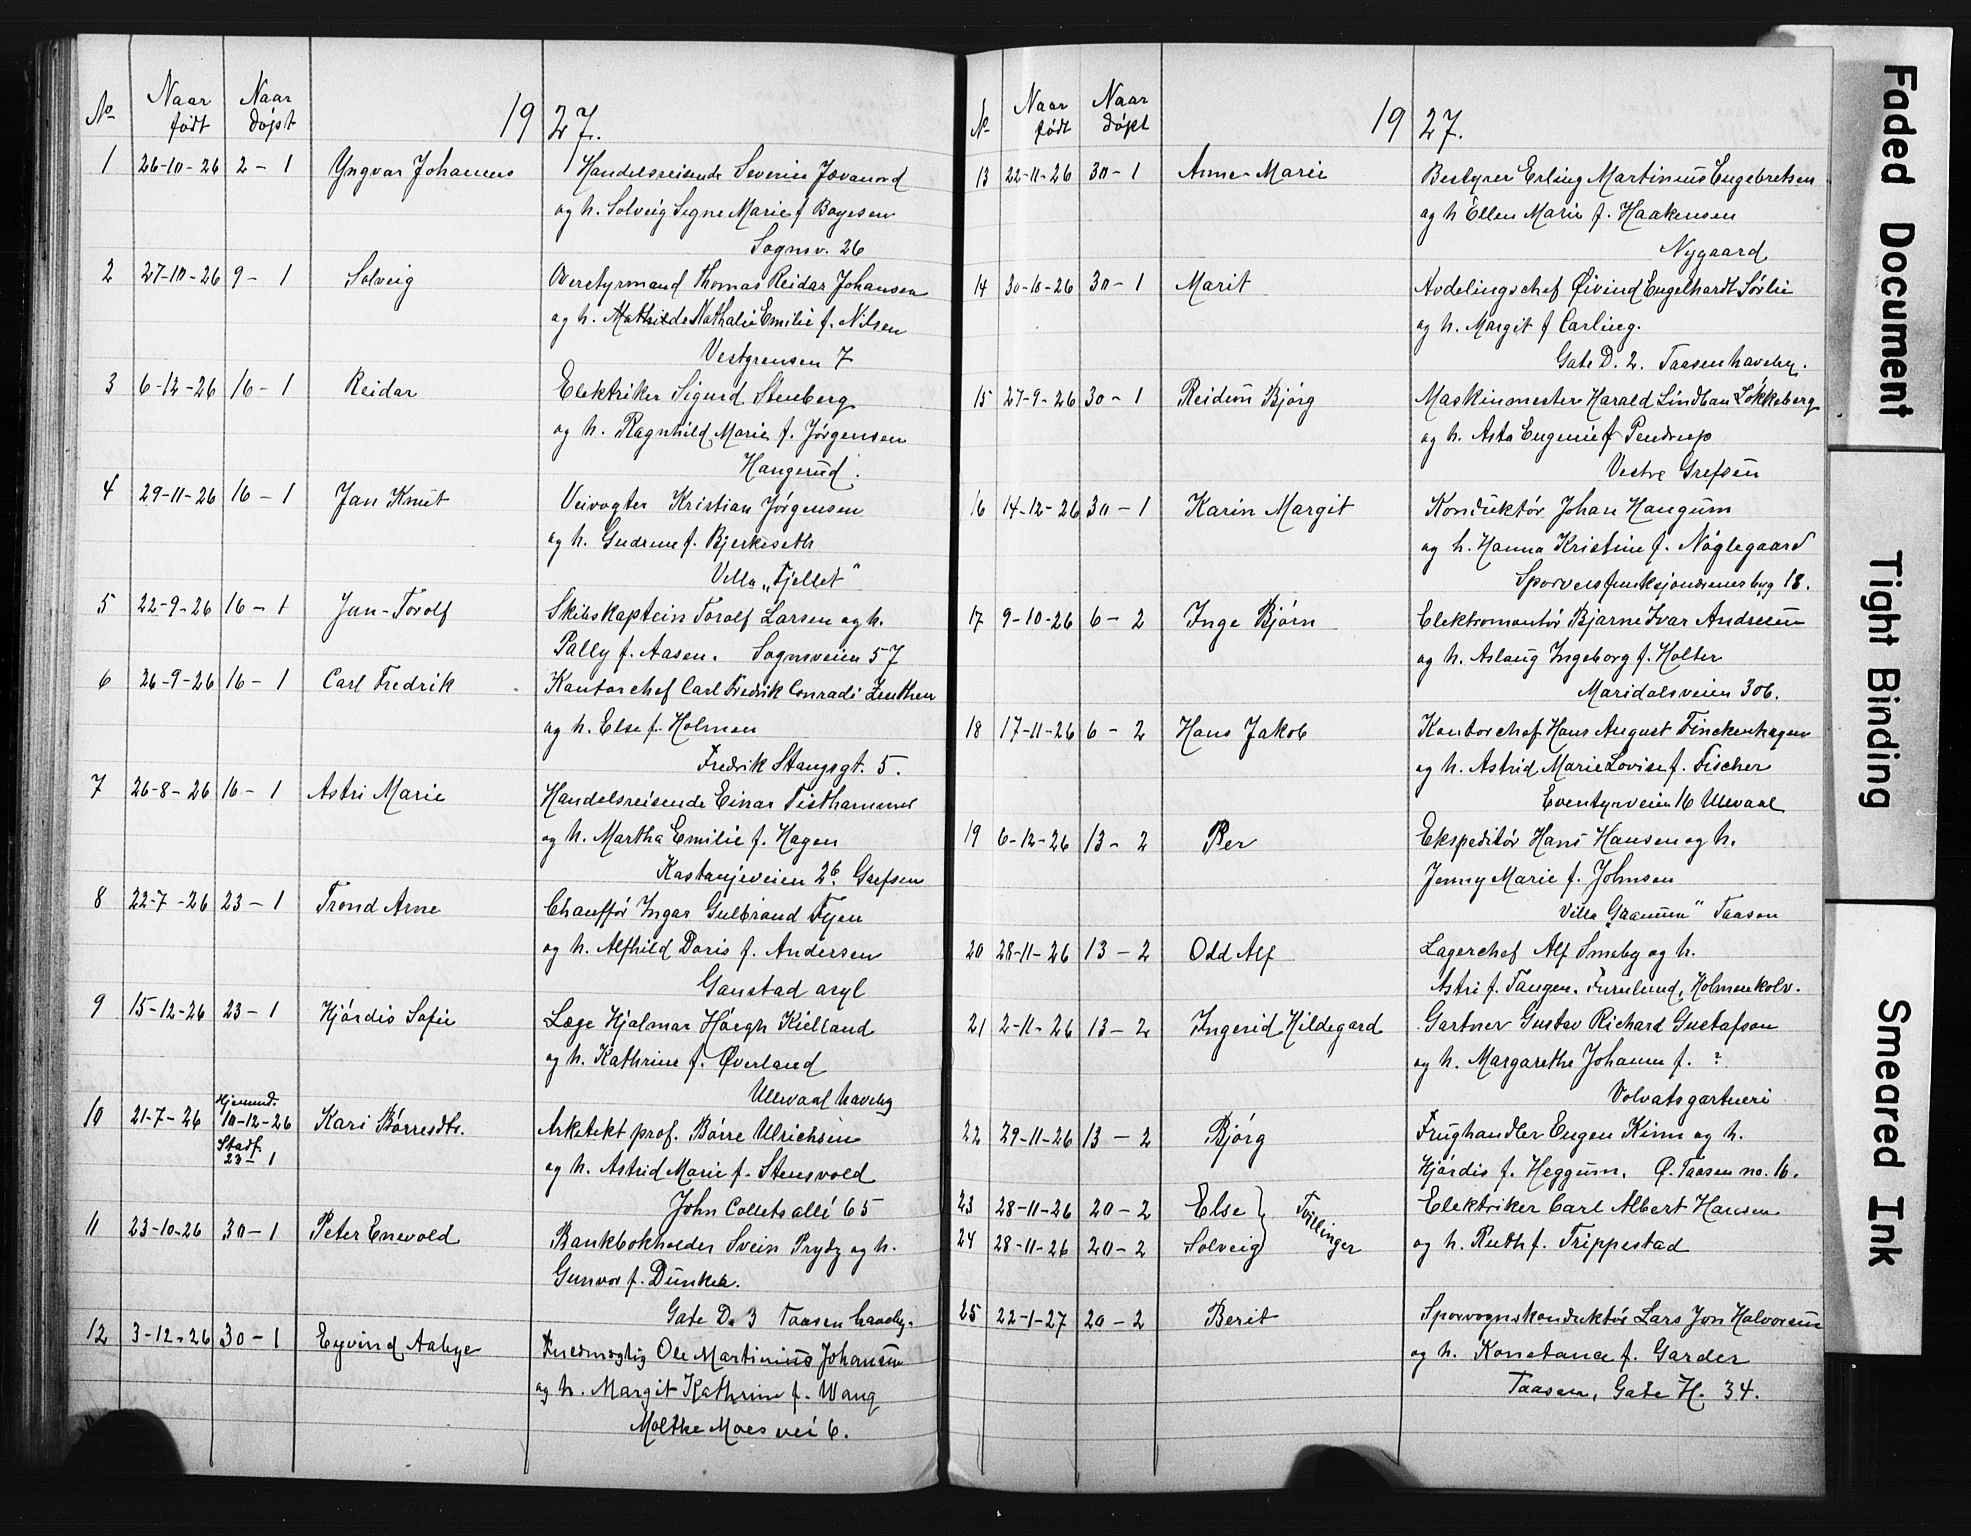 No Naar født Naar døpt 1927.
1 26-10-26 2-1 Yngvar Johannes Handelsreisende Severin Jøvanord
og h. Solveig Signe Marie f Boyesen
Sognsv. 26
2 27-10-26 9-1 Solveig Overstyrmand Thomas Reidar Johansen
og h. Mathilde Nathalie Emilie f. Nilsen
Vestgrensen 7
3 6-12-26 16-1 Reidar Elektriker Sigurd Stenberg
og h. Ragnhild Marie f. Jørgensen
Haugerud.
4 29-11-26 16-1 Jan Knut Veivogter Kristian Jørgensen
og h. Gudrun f. Bjerkeseth
Villa „Fjellet"
5 22-9-26 16-1 Jan-Torolf Skibskaptein Torolf Larsen og h.
Pally f. Aasen. Sognsveien 57
6 26-9-26 16-1 Carl Fredrik Kontorchef Carl Fredrik Conradi Zeuthen
og h. Else f. Holmen
Fredrik Stangsgt. 5.
7 26-8-26 16-1 Astri Marie Handelsreisende Einar Tisthammer
og h. Martha Emilie f. Hagen
Kastanjeveien 2b. Grefsen
8 22-7-26 23-1 Trond Arne Chauffør Ingar Gulbrand Fyen
og h. Alfhild Doris f. Andersen
Gaustad asyl
9 15-12-26 23-1 Hjørdis Sofie Læge Hjalmar Høegh Kielland
og h. Kathrine f. Øverland
Ullevaal haveby
10 21-7-26 Hjemmed. 10-12-26 Stadf. 23-1 Kari Børresdtr. Arkitekt prof. Børre Ulrichsen
og h. Astrid Marie f. Stensvold
John Collets allé 65
11 23-10-26 30-1 Peter Enevold Bankbokholder Svein Prydz og h.
Gunvor f. Dunker.
Gate D. 3 Taasen haveby.
12 3-12-26 30-1 Eyvind Aabye Fuldmægtig Ole Martinius Johansen
og h. Margit Kathrine f. Wang
Moltke Moes vei 6.
No Naar født Naar døpt 1927.
13 22-11-26 30-1 Anne-Marie Bestyrer Erling Martinius Engebretsen
og h Ellen Marie f. Haakensen
Nygaard
14 30-10-26 30-1 Marit Avdelingschef Øivind Engelhardt Sørlie
og h. Margit f Carling.
Gate D. 2. Taasen haveby.
15 27-9-26 30-1 Reidun Bjørg Maskinmester Harald Lindboe Løkkeberg
og h. Asta Eugenie f Pendrup
Vestre Grefsen
16 14-12-26 30-1 Karin Margit Konduktør Johan Haugum
og h. Hanna Kristine f. Nøglegaard
Sporveisfunksjonærenes byg 18.
17 9-10-26 6-2 Inge Bjørn Elektromontør Bjarne Ivar Andresen
og h. Aslaug Ingeborg f. Holter
Maridalsveien 306.
18 17-11-26 6-2 Hans Jakob Kontorchef Hans August Finckenhagen
og h. Astrid Marie Lovise f. Fischer
Eventyrveien 16 Ullevaal
19 6-12-26 13-2 Per Ekspeditør Hans Hansen og h.
Jenny Marie f. Johnsen
Villa „Granum" Taasen
20 28-11-26 13-2 Odd Alf Lagerchef Alf Smeby og h.
Astri f. Tangen. Furulund, Holmenkolv.
21 2-11-26 13-2 Ingerid Hildegard Gartner Gustav Richard Gustafson
og h. Margarethe Johanne f. ?
Volvatsgartneri
22 29-11-26 13-2 Bjørg Frugthandler Eugen Kinn og h.
Hjørdis f. Heggum. Ø. Taasen no. 16.
23 28-11-26 20-2 Else } Tvillinger Elektriker Carl Albert Hansen
24 28-11-26 20-2 Solveig og h. Ruth f. Trippestad
25 22-1-27 20-2 Berit Sporvognskonduktør Lars Jon Halvorsen
og h. Konstance f. Garder
Taasen, Gate H. 34.
Faded Document
Tight Binding
Smeared Ink